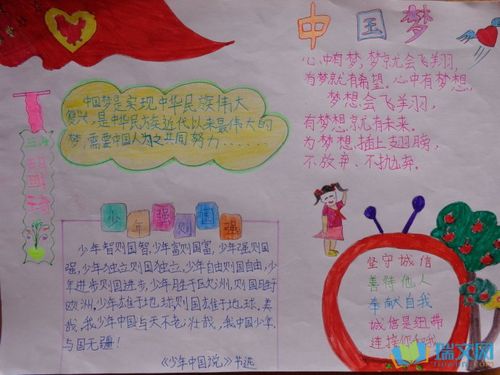 中国梦
心中有梦,梦就会飞翔,
为梦就有希望。心中有梦想,
梦想会飞翔,
有梦想,就有未来。
为梦想,插上翅膀,
不放弃、不抛弃。
中国梦是实现中华民族伟大
复兴,是中华民族近代以来最伟大的
梦,需要中国人为之共同努力......
少年强则国强
少年智则国智,少年富则国富,少年强则国
强,少年独立则国独立,少年自由则国自由,少
年进步则国进步,少年胜于欧洲,则国胜于
欧洲,少年雄于地球,则国雄于地球。美
哉,我少年中国与天不老,壮哉,我中国少年,
与国无疆!
《少年中国说》节选
坚守诚信
善待他人
奉献自我
诚信是纽带
连接你和我
瑞文网